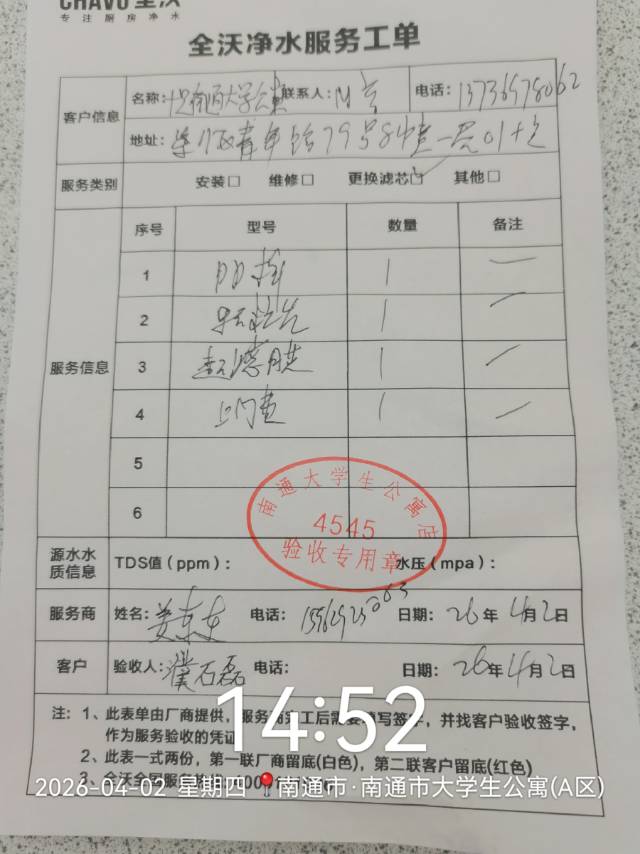 CHAVO全沃
专注厨房净水
全沃净水服务工单
客户信息
名称: 南通大学 联系人: 电话:
地址: 79号 一层01
服务类别 安装□ 维修□ 更换滤芯☑ 其他□
服务信息
序号 型号 数量 备注
1 PP棉 1 —
2 1 —
3 超滤膜 1 —
4 上门费 1 —
5
6
南通大学生公寓店
4545
验收专用章
源水水质信息 TDS值(ppm): 水压(mpa):
服务商 姓名:姜东东 电话: 日期:26年4月2日
客户 验收人:濮石磊 电话: 日期:26年4月2日
注:1、此表单由厂商提供,服务商完工后需要填写签字,并找客户验收签字,
作为服务验收的凭证
2、此表一式两份,第一联厂商留底(白色),第二联客户留底(红色)
3、全沃全国服务
14:52
2026-04-02 星期四 南通市·南通市大学生公寓(A区)